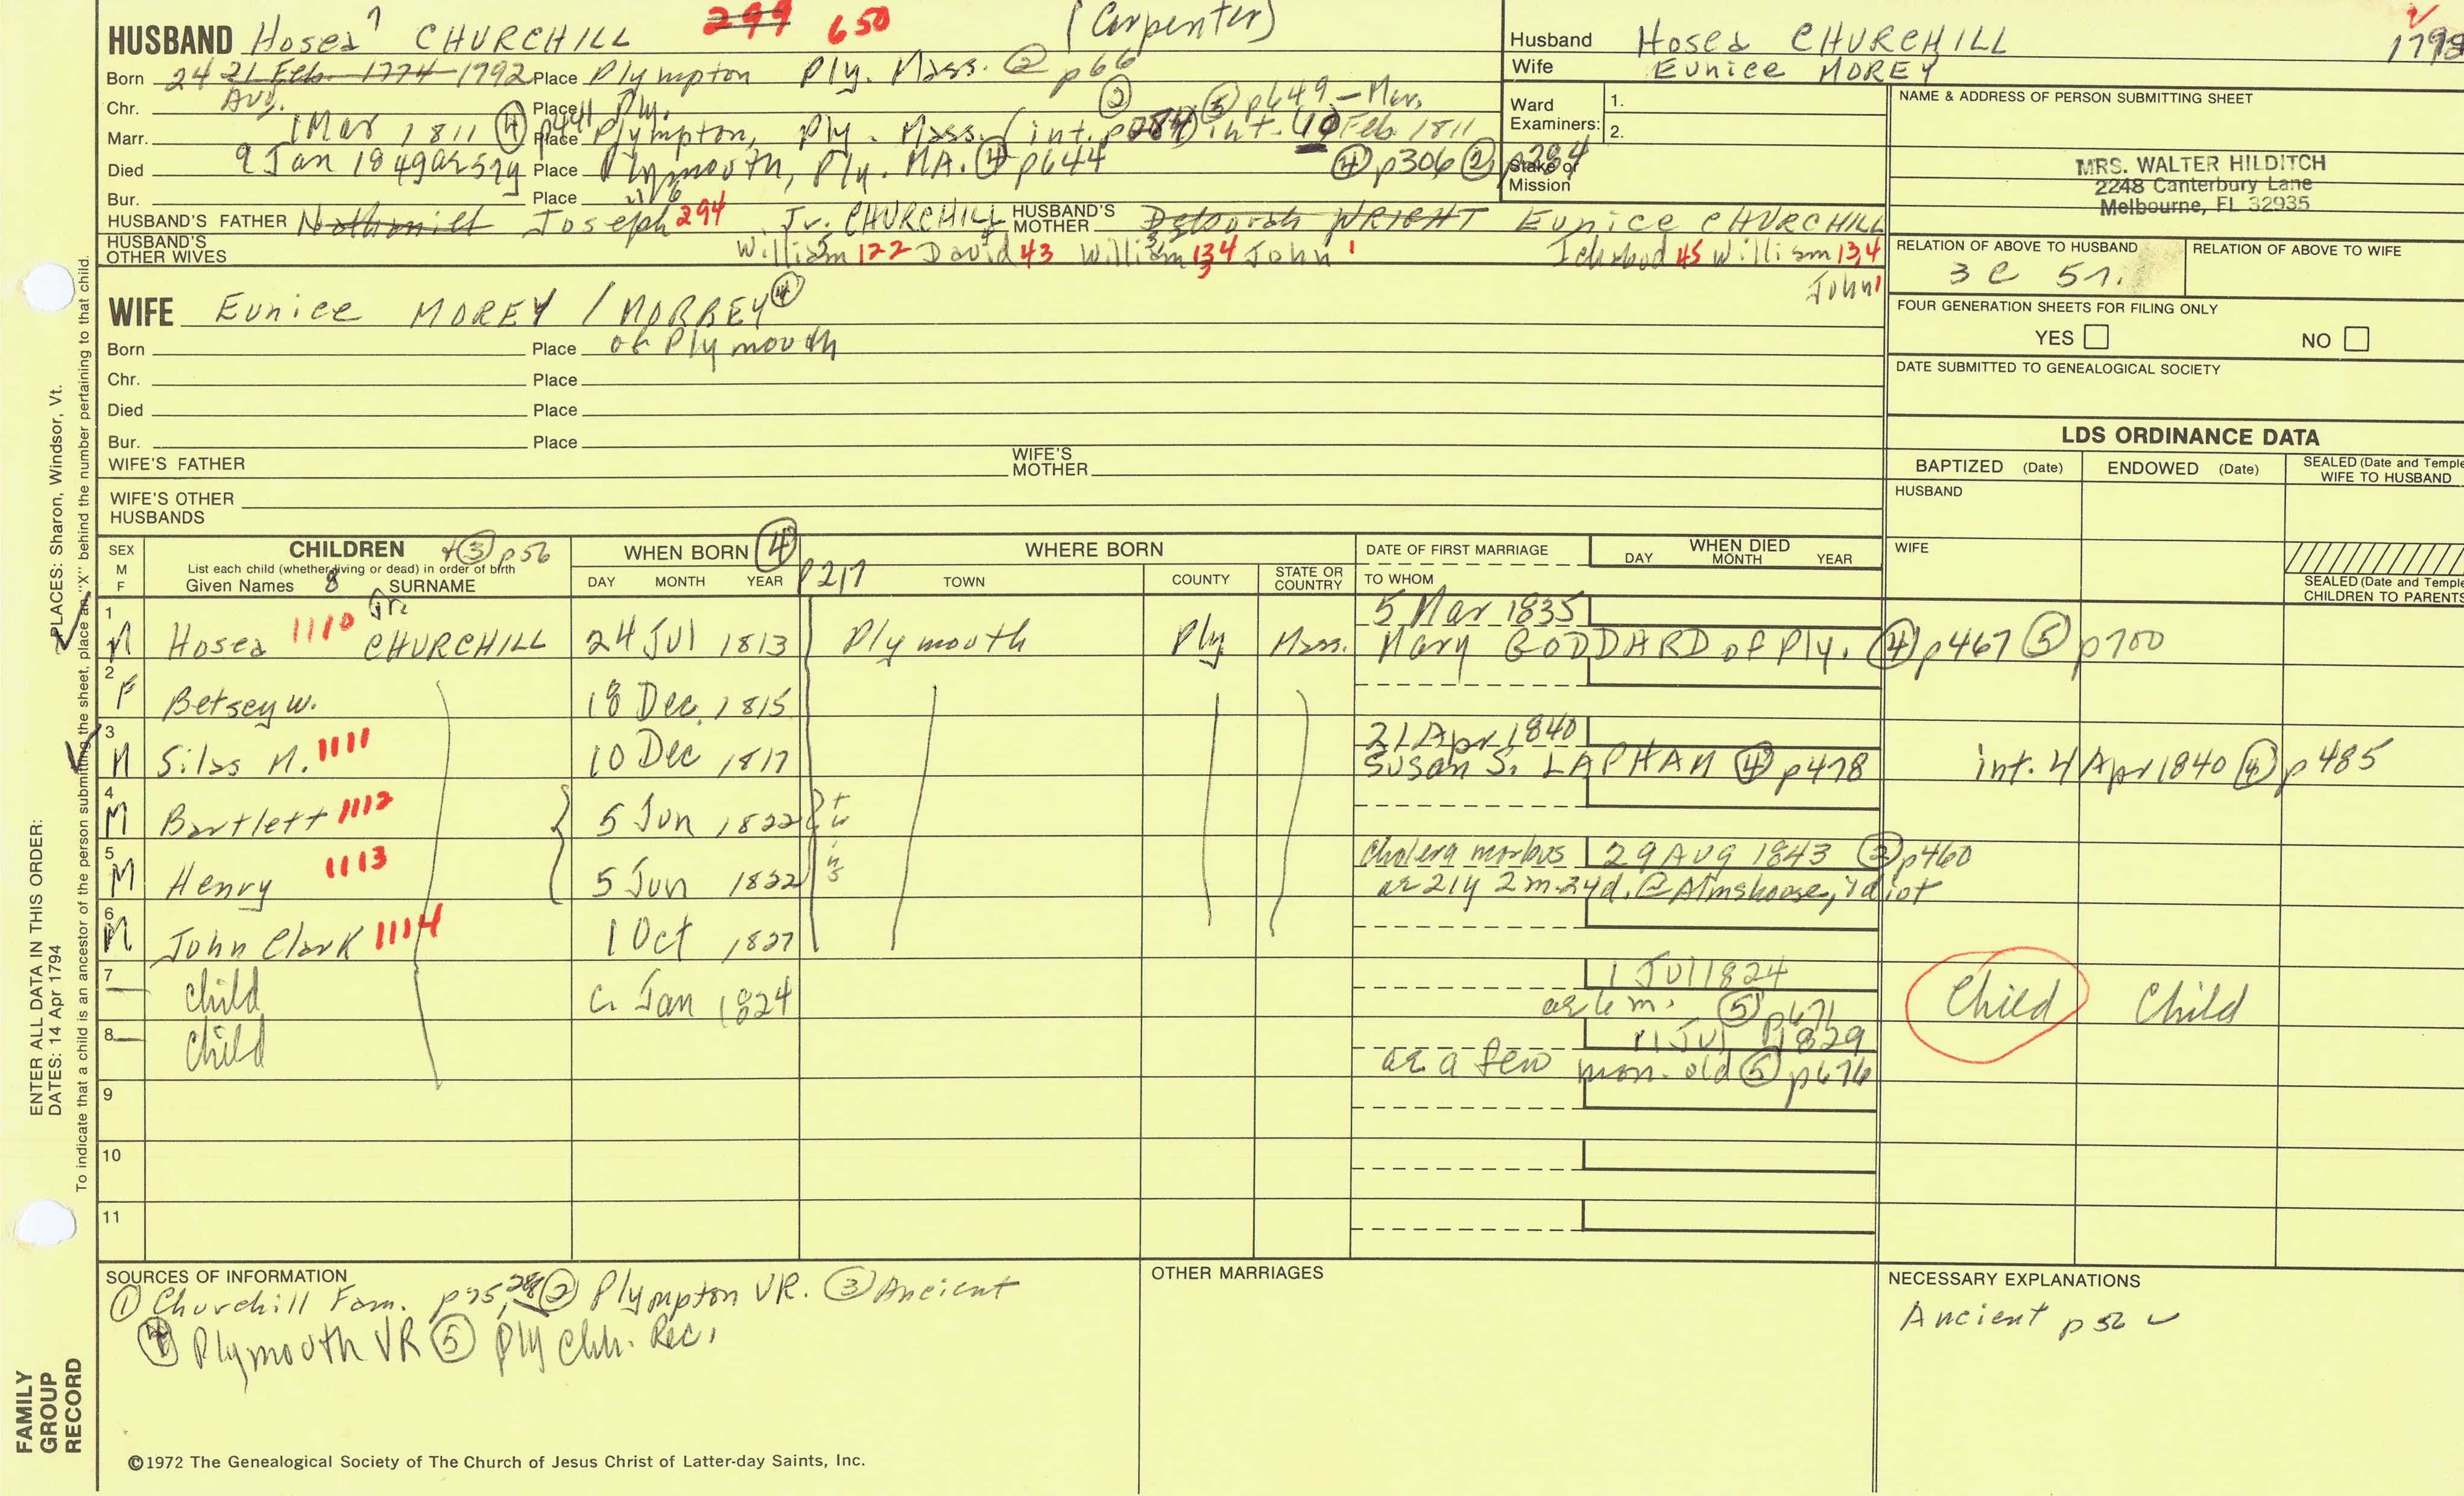 HUSBAND Hosea 7 CHURCHILL 299 650 (Carpenter)
Born 24 21 Feb. 1774 1792 Place Plympton Ply. Mass. ② p66
Aug.
Chr. Place Ply.
Marr. 1 Mar 1811 ④ Place Plympton, Ply. Mass. (int. ② ⑤ p649 - Mar. int. 10 Feb. 1811
④ p306 ② p284
Died 9 Jan 1849 ae 57y Place Plymouth, Ply. MA. ④ p644
Bur. Place
HUSBAND'S FATHER Nathaniel Joseph 294 Jr. CHURCHILL HUSBAND'S MOTHER Deborah WRIGHT Eunice CHURCHILL
HUSBAND'S OTHER WIVES William 122 David 43 William 13,4 John 1 Ichabod 45 William 13,4
John 1
Husband Hosea CHURCHILL
Wife Eunice MOREY
1798
Ward Examiners: 1.
2.
Stake or Mission
NAME & ADDRESS OF PERSON SUBMITTING SHEET
MRS. WALTER HILDITCH
2248 Canterbury Lane
Melbourne, FL 32935
RELATION OF ABOVE TO HUSBAND RELATION OF ABOVE TO WIFE
3 C 5 r.
FOUR GENERATION SHEETS FOR FILING ONLY
YES NO
DATE SUBMITTED TO GENEALOGICAL SOCIETY
WIFE Eunice MOREY / MORREY ④
Born Place of Plymouth
Chr. Place
Died Place
Bur. Place
WIFE'S FATHER WIFE'S MOTHER
WIFE'S OTHER HUSBANDS
LDS ORDINANCE DATA
BAPTIZED (Date) ENDOWED (Date) SEALED (Date and Temple WIFE TO HUSBAND
HUSBAND
WIFE
SEALED (Date and Temple CHILDREN TO PARENTS
SEX M F CHILDREN ③ p56 WHEN BORN ④ p217 WHERE BORN DATE OF FIRST MARRIAGE WHEN DIED
List each child (whether living or dead) in order of birth
Given Names 8 SURNAME DAY MONTH YEAR TOWN COUNTY STATE OR COUNTRY TO WHOM DAY MONTH YEAR
1 M Hosea 1110 Jr. CHURCHILL 24 Jul 1813 Plymouth Ply Mass. 5 Mar 1835
Mary GODDARD of Ply. ④ p467 ⑤ p700
2 F Betsey W. 18 Dec. 1815
3 M Silas M. 1111 10 Dec 1817 21 Apr 1840
Susan S. LAPHAM ④ p478 int. 4 Apr 1840 ④ p485
4 M Bartlett 1112 5 Jun 1822 twins
5 M Henry 1113 5 Jun 1822 cholera morbus 29 AUG 1843 p460
ae 21y 2m 24d. @ Almshouse, idiot
6 M John Clark 1114 1 Oct 1827
7 child c. Jan 1824 1 Jul 1824
ae 6 m. ⑤ p671
Child Child
8 child 11 Jul 1829
ae a few mon. old ⑤ p676
9
10
11
SOURCES OF INFORMATION
① Churchill Fam. ② Plympton VR. ③ Ancient
④ Plymouth VR ⑤ Ply Chh. Rec.
OTHER MARRIAGES
NECESSARY EXPLANATIONS
Ancient p 56
©1972 The Genealogical Society of The Church of Jesus Christ of Latter-day Saints, Inc.
FAMILY GROUP RECORD
ENTER ALL DATA IN THIS ORDER:
DATES: 14 Apr 1794
PLACES: Sharon, Windsor, Vt.
To indicate that a child is an ancestor of the person submitting the sheet, place an "X" behind the number pertaining to that child.